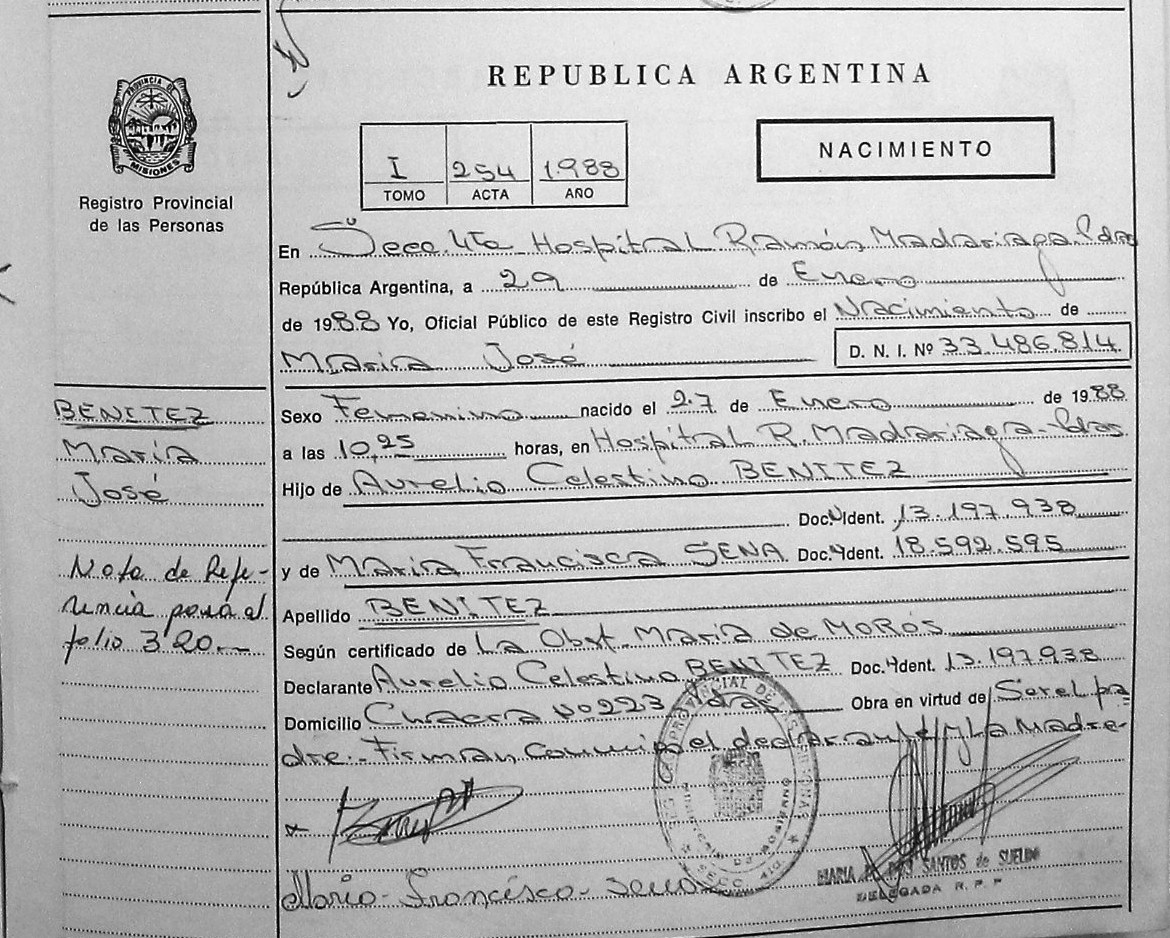 PROVINCIA DE
MISIONES
Registro Provincial
de las Personas
REPUBLICA ARGENTINA
I 254 1988
TOMO ACTA AÑO
NACIMIENTO
En Secc. 4ta Hospital Ramón Madariaga. Pdas
República Argentina, a 29 de Enero
de 1988 Yo, Oficial Público de este Registro Civil inscribo el Nacimiento de
María José D. N. I. Nº 33.486.814.
Sexo Femenino nacido el 27 de Enero de 1988
a las 10,25 horas, en Hospital R. Madariaga-Pdas
Hijo de Aurelio Celestino BENITEZ
Doc. Ident. 13.197.938
y de María Francisca SENA Doc. Ident. 18.592.595
Apellido BENITEZ
Según certificado de La Obst. María de MOROS
Declarante Aurelio Celestino BENITEZ Doc. Ident. 13.197.938
Domicilio Chacra Nº 223 Pdas Obra en virtud de Ser el pa
dre.- Firman conmigo el declarante y La Madre-
BENITEZ
María
José
Nota de Refe-
rencia pasa al
folio 320.-
María-Francisca-Sena
SANTOS de SUELDO
DELEGADA R. P. P